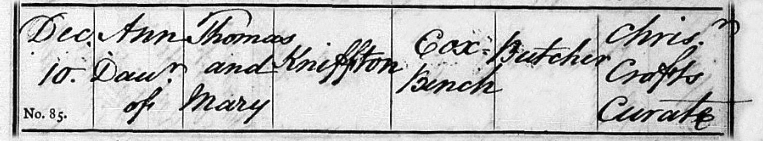 Dec. Ann Thomas Kniffton Cox= Butcher Chris.r
10. Daur. and Bench Crofts
No. 85. of Mary Curate